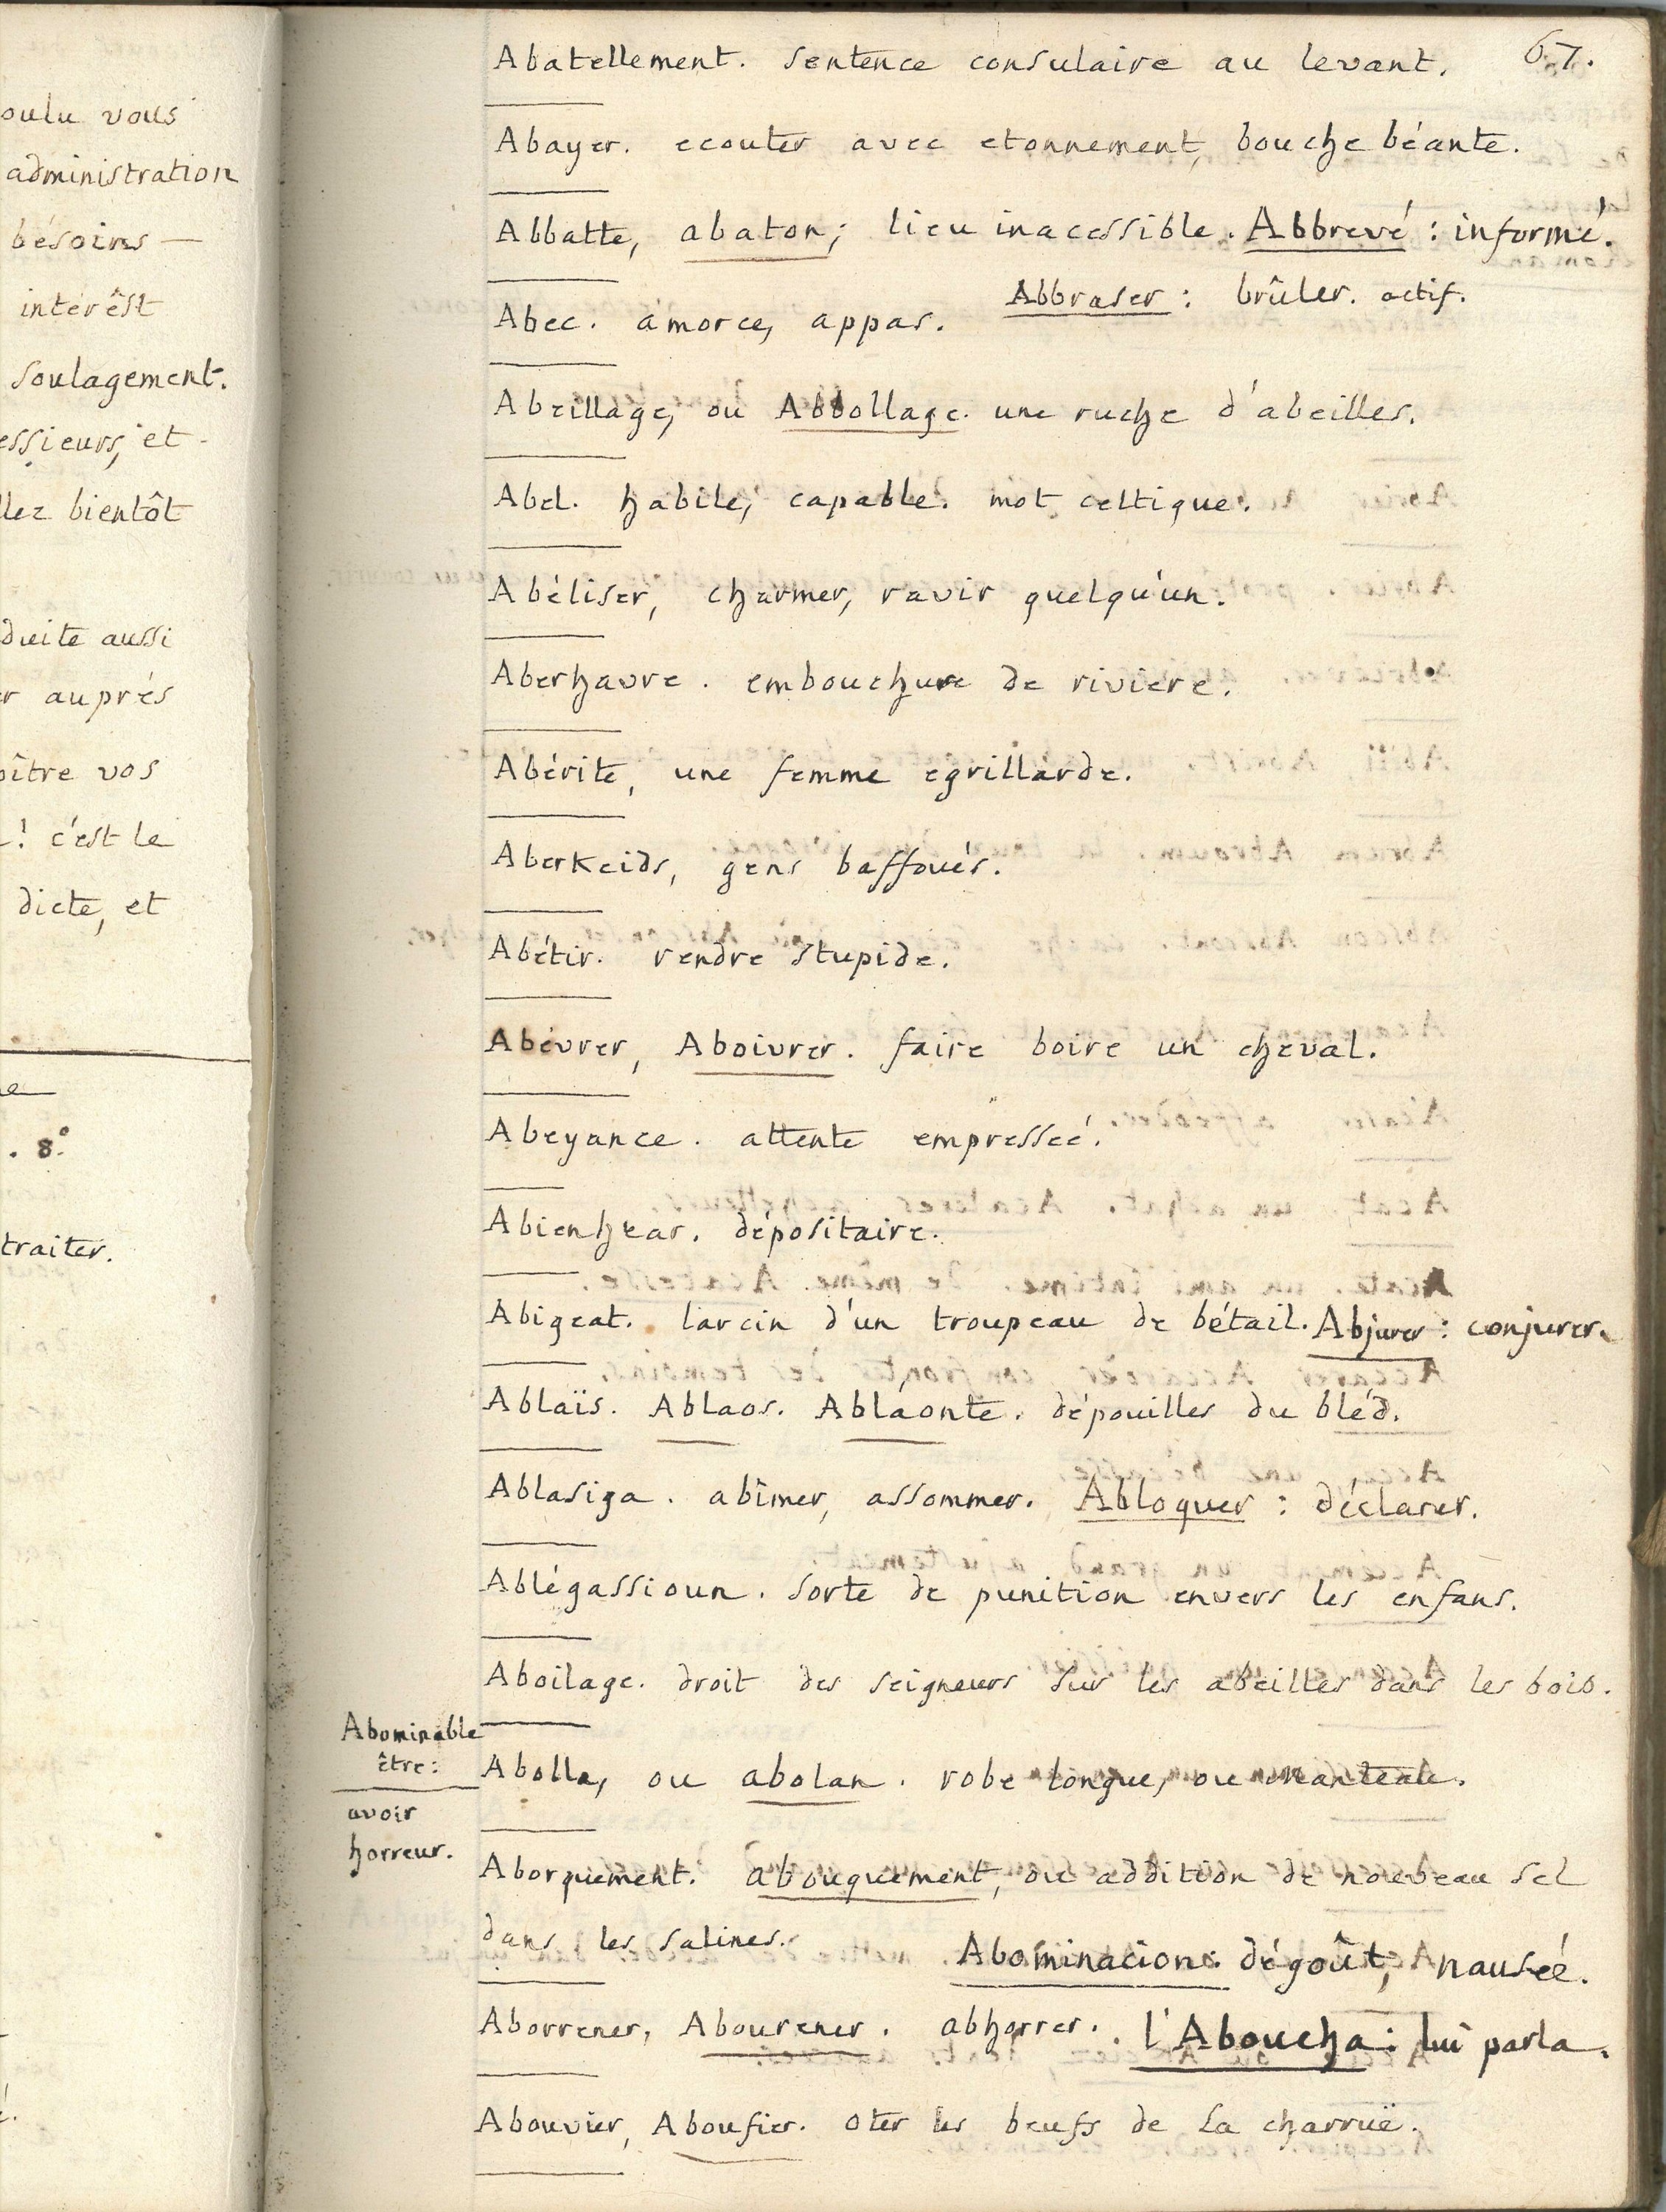 oulu vous
administration
bésoins —
interêst
soulagement.
essieurs, et -
llez bientôt
duite aussi
r auprés
oître vos
! c'est le
dicte, et
. 8.°
traiter.
67.
Abatellement. sentence consulaire au levant.
Abayer. ecouter avec etonnement, bouche béante.
Abbatte, abaton; lieu inacessible. Abbrevé : informé.
Abbraser : brûler. actif.
Abec. amorce, appas.
Abeillage, ou Abbollage. une ruche d'abeilles.
Abel. habile, capable. mot celtique.
Abéliser, charmer, ravir quelqu'un.
Aberhavre. embouchure de riviere.
Abérite, une femme egrillarde.
Aberkeids, gens baffoués.
Abétir. rendre stupide.
Abévrer, Aboivrer. faire boire un cheval.
Abeyance. attente empresseé.
Abienhear. dépositaire.
Abigeat. larcin d'un troupeau de bétail. Abjurer : conjurer.
Ablaïs. Ablaos. Ablaonte. dépouilles du bléd.
Ablasiga. abîmer, assommer. Abloquer : déclarer.
Ablégassioun. sorte de punition envers les enfans.
Aboilage. droit des seigneurs sur les abeilles dans les bois.
Abominable
être:
avoir
horreur.
Abolla, ou abolan. robe longue, ou manteau.
Aborquement. abouquement, ou addition de nouveau sel
dans les salines.
Abominacion : dégoût, nauseé.
Aborrener, Abourener. abhorrer. l'Aboucha : lui parla.
Abouvier, Aboufier. oter les beufs de la charruë.